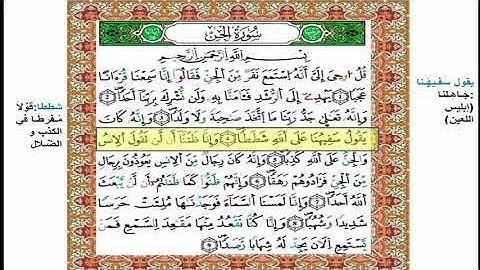 سُورَةُ الجِنِّ
بِسْمِ اللَّهِ الرَّحْمَنِ الرَّحِيمِ
قُلْ أُوحِيَ إِلَيَّ أَنَّهُ اسْتَمَعَ نَفَرٌ مِّنَ الْجِنِّ فَقَالُوا إِنَّا سَمِعْنَا قُرْآنًا
عَجَبًا ١ يَهْدِي إِلَى الرُّشْدِ فَآمَنَّا بِهِ وَلَن نُّشْرِكَ بِرَبِّنَا أَحَدًا ٢
وَأَنَّهُ تَعَالَى جَدُّ رَبِّنَا مَا اتَّخَذَ صَاحِبَةً وَلَا وَلَدًا ٣ وَأَنَّهُ كَانَ
يَقُولُ سَفِيهُنَا عَلَى اللَّهِ شَطَطًا ٤ وَأَنَّا ظَنَنَّا أَن لَّن تَقُولَ الْإِنسُ
وَالْجِنُّ عَلَى اللَّهِ كَذِبًا ٥ وَأَنَّهُ كَانَ رِجَالٌ مِّنَ الْإِنسِ يَعُوذُونَ بِرِجَالٍ
مِّنَ الْجِنِّ فَزَادُوهُمْ رَهَقًا ٦ وَأَنَّهُمْ ظَنُّوا كَمَا ظَنَنتُمْ أَن لَّن يَبْعَثَ
اللَّهُ أَحَدًا ٧ وَأَنَّا لَمَسْنَا السَّمَاءَ فَوَجَدْنَاهَا مُلِئَتْ حَرَسًا
شَدِيدًا وَشُهُبًا ٨ وَأَنَّا كُنَّا نَقْعُدُ مِنْهَا مَقَاعِدَ لِلسَّمْعِ فَمَن
يَسْتَمِعِ الْآنَ يَجِدْ لَهُ شِهَابًا رَّصَدًا ٩
يقول سفيهُنا
:جاهلنا
((إبليس
اللعين)
شططا: قَوْلاً
مُفرطا في
الكذب و
الضّلال